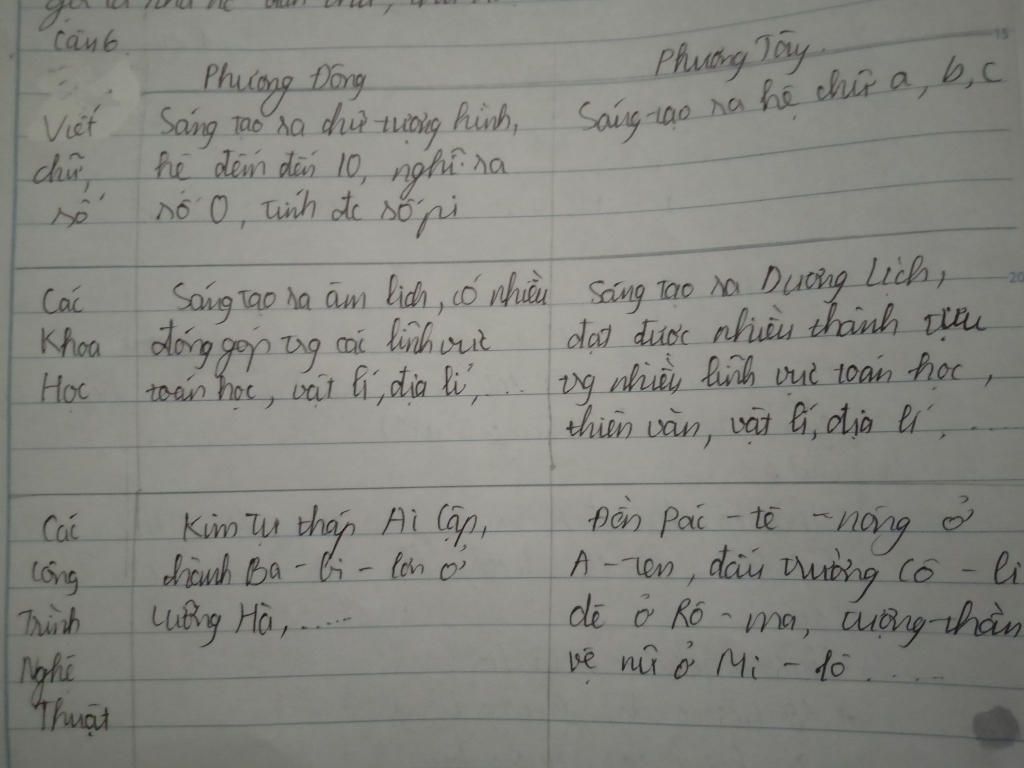 Câu 6
Phương Đông Phương Tây
Viết Sáng tạo ra chữ tượng hình, Sáng tạo ra hệ chữ a, b, c
chữ, hê đếm đến 10, nghĩ ra
số số 0, tính đc số pi
Các Sáng tạo ra âm lịch, có nhiều Sáng tạo ra Dương Lịch,
Khoa đóng góp trg các lĩnh vực đạt được nhiều thành tựu
Học toán học, vật lí, địa lí, ... trg nhiều lĩnh vực toán học,
thiên văn, vật lí, địa lí, ......
Các Kim tự tháp Ai Cập, Đền Pác - tê - nông ở
Công thành Ba - bi - lon ở A - ten, đấu trường Cô - li
Trình Lưỡng Hà, ...... dê ở Rô - ma, tượng thần
Nghệ vệ nữ ở Mi - lô .....
Thuật